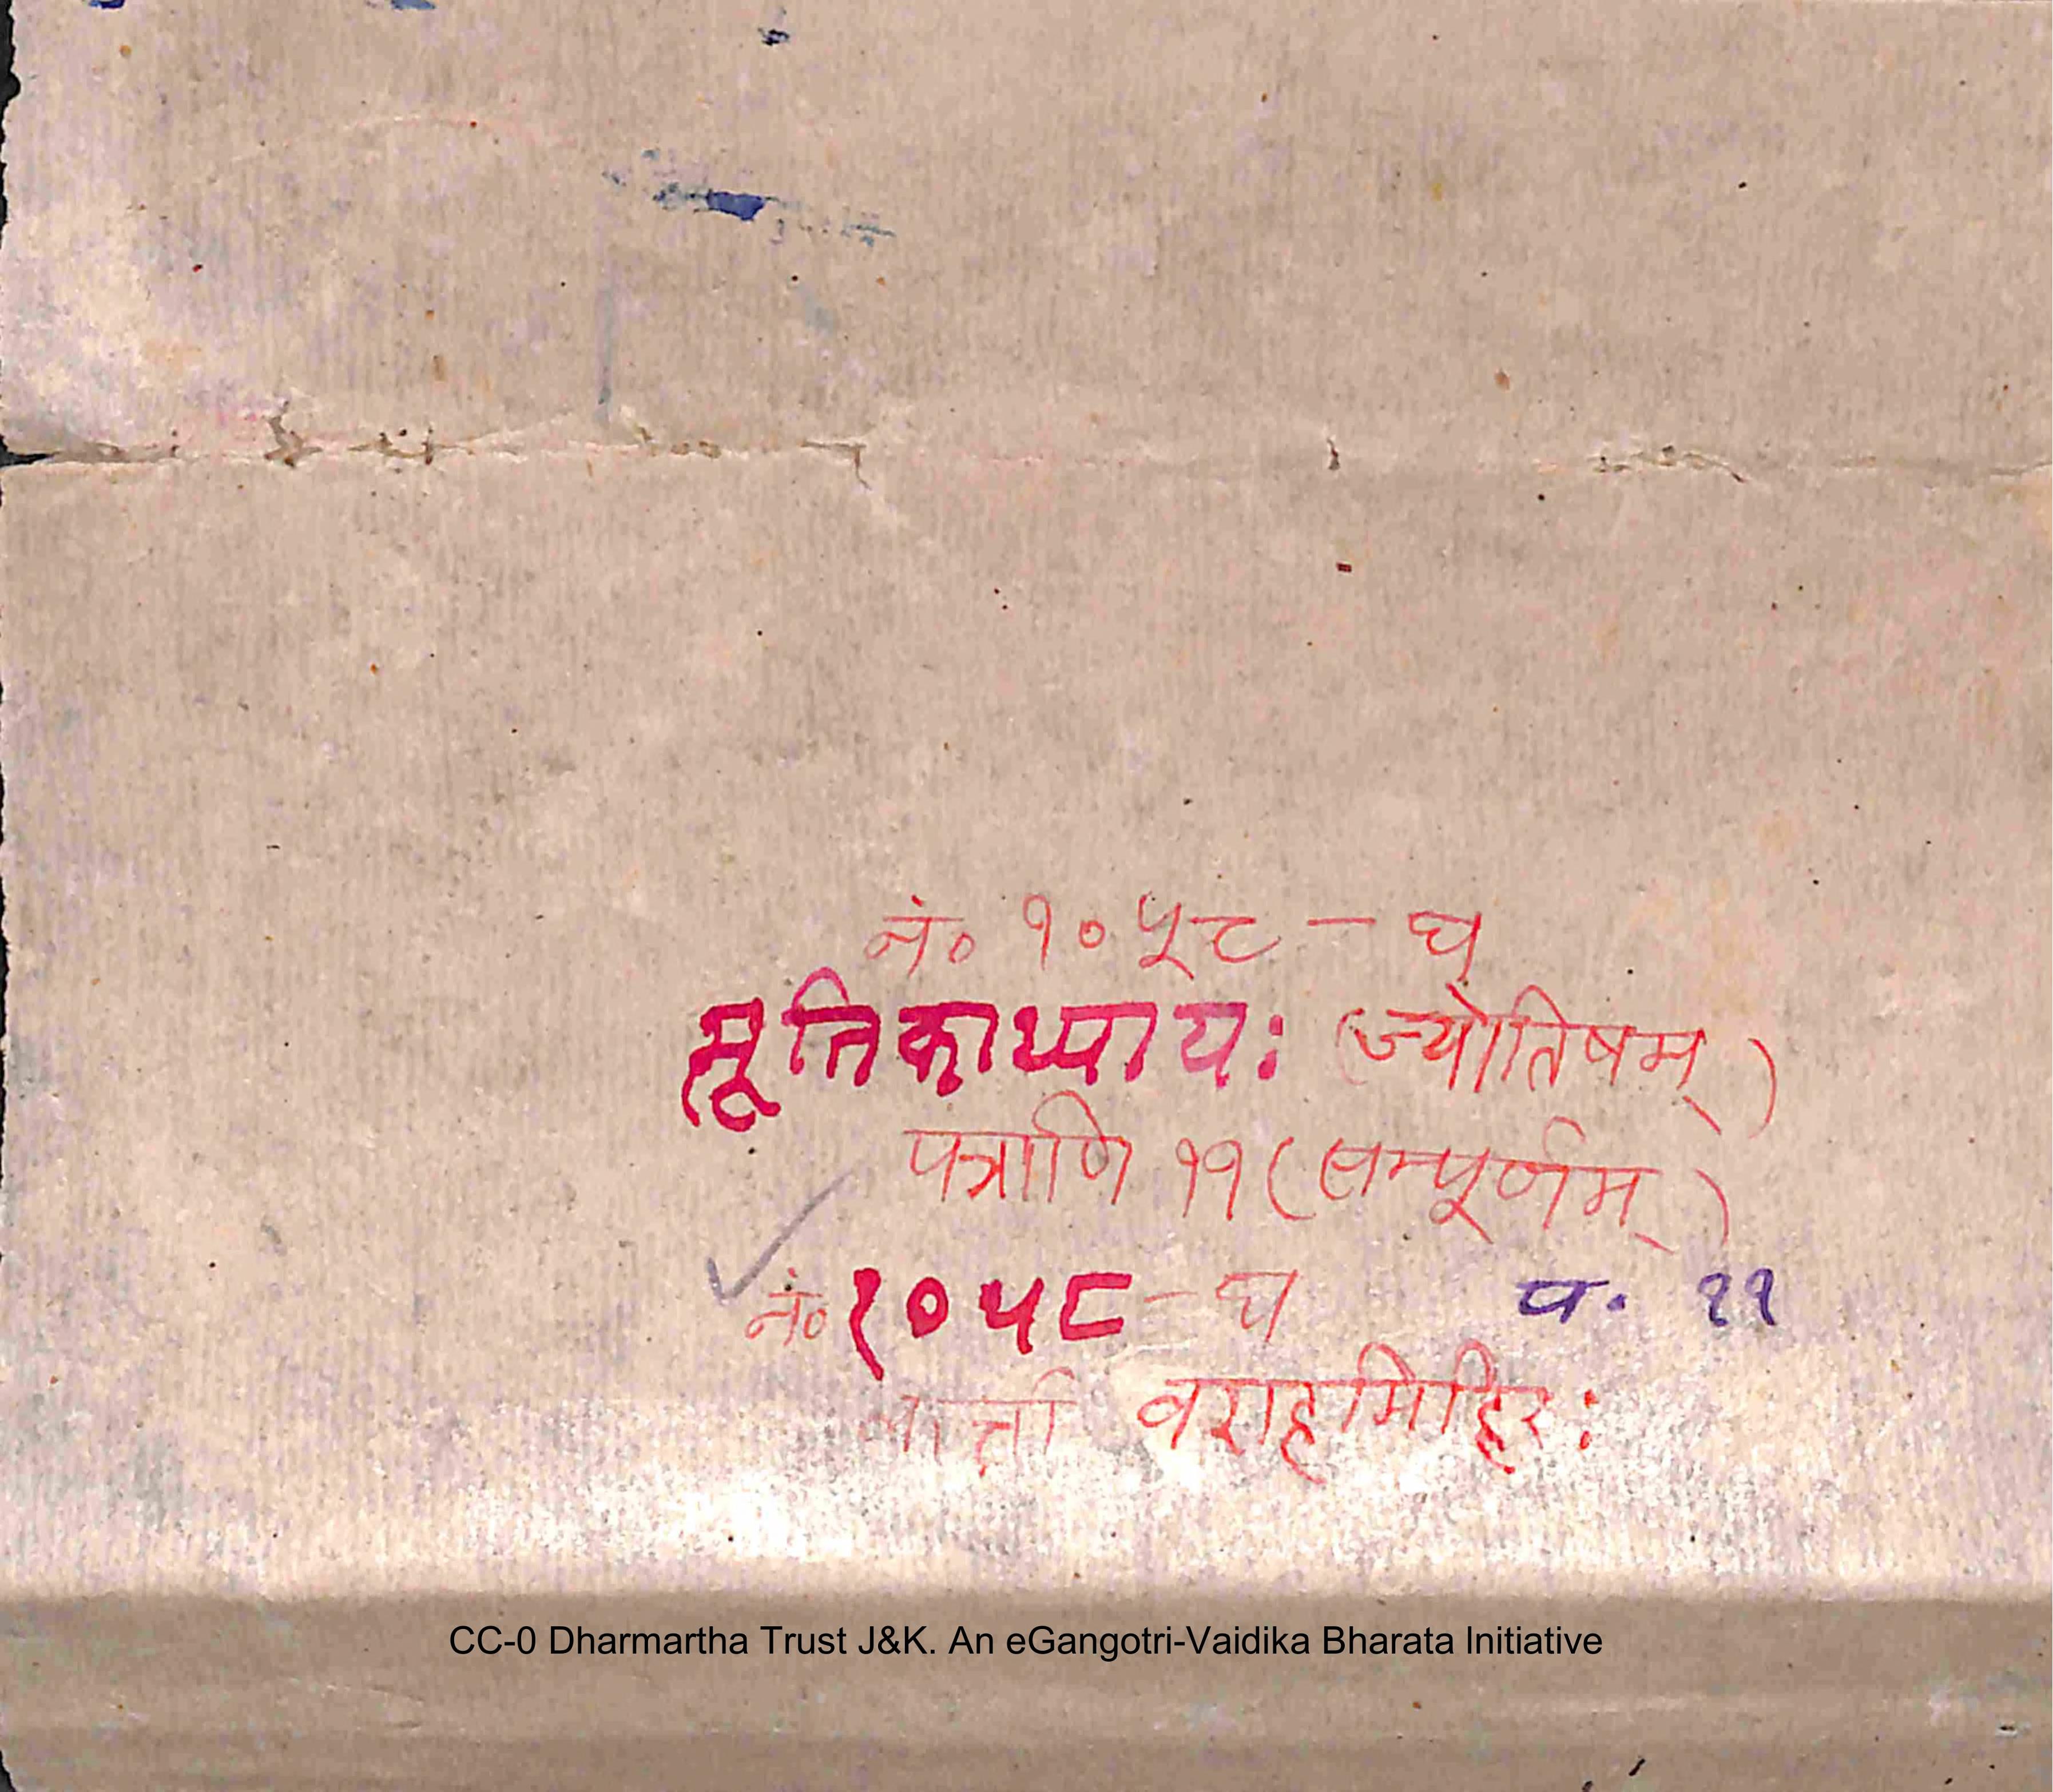 नं० १०५८ - घ
सूतिकाध्यायः (ज्योतिषम्)
पत्राणि ११ (सम्पूर्णम्)
नं० १०५८ - घ प. ११
वराहमिहिरः
CC-0 Dharmartha Trust J&K. An eGangotri-Vaidika Bharata Initiative